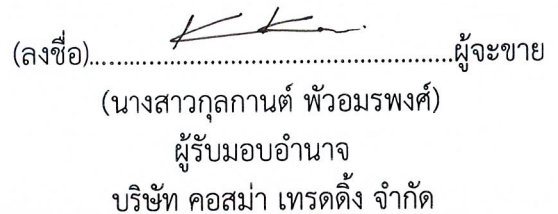 (ลงชื่อ)..........................................................ผู้จะขาย
(นางสาวกุลกานต์ พัวอมรพงศ์)
ผู้รับมอบอำนาจ
บริษัท คอสม่า เทรดดิ้ง จำกัด